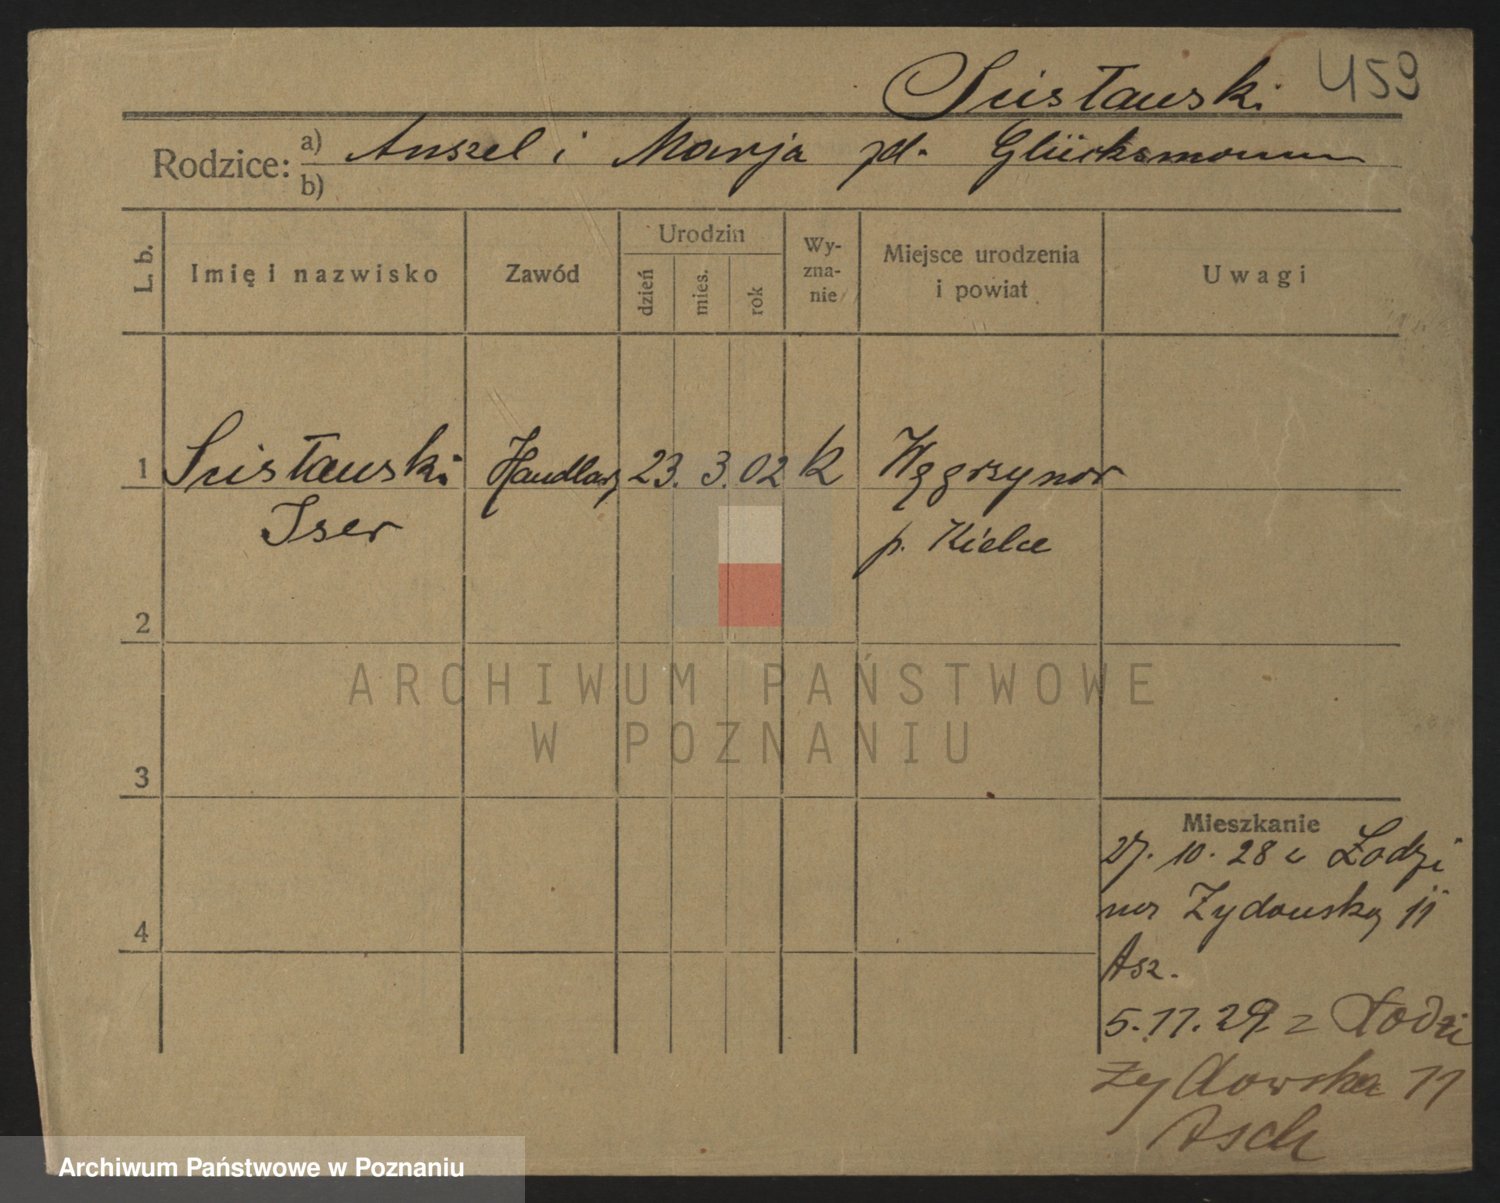 Sisławski 459
Rodzice: a) Anszel i Marja zd. Glücksmann
b)
L. b. Imię i nazwisko Zawód Urodzin dzień mies. rok Wyznanie Miejsce urodzenia i powiat Uwagi
1 Sisławski Handlarz 23. 3. 02 Węgrzynow
Iser p. Kielce
2
ARCHIWUM PAŃSTWOWE
W POZNANIU
3
Mieszkanie
27. 10. 28 z Łodzi
Zydowską 11
4
Asz.
5. 11. 29 z Łodzi
Zydowska 11
Asch
Archiwum Państwowe w Poznaniu